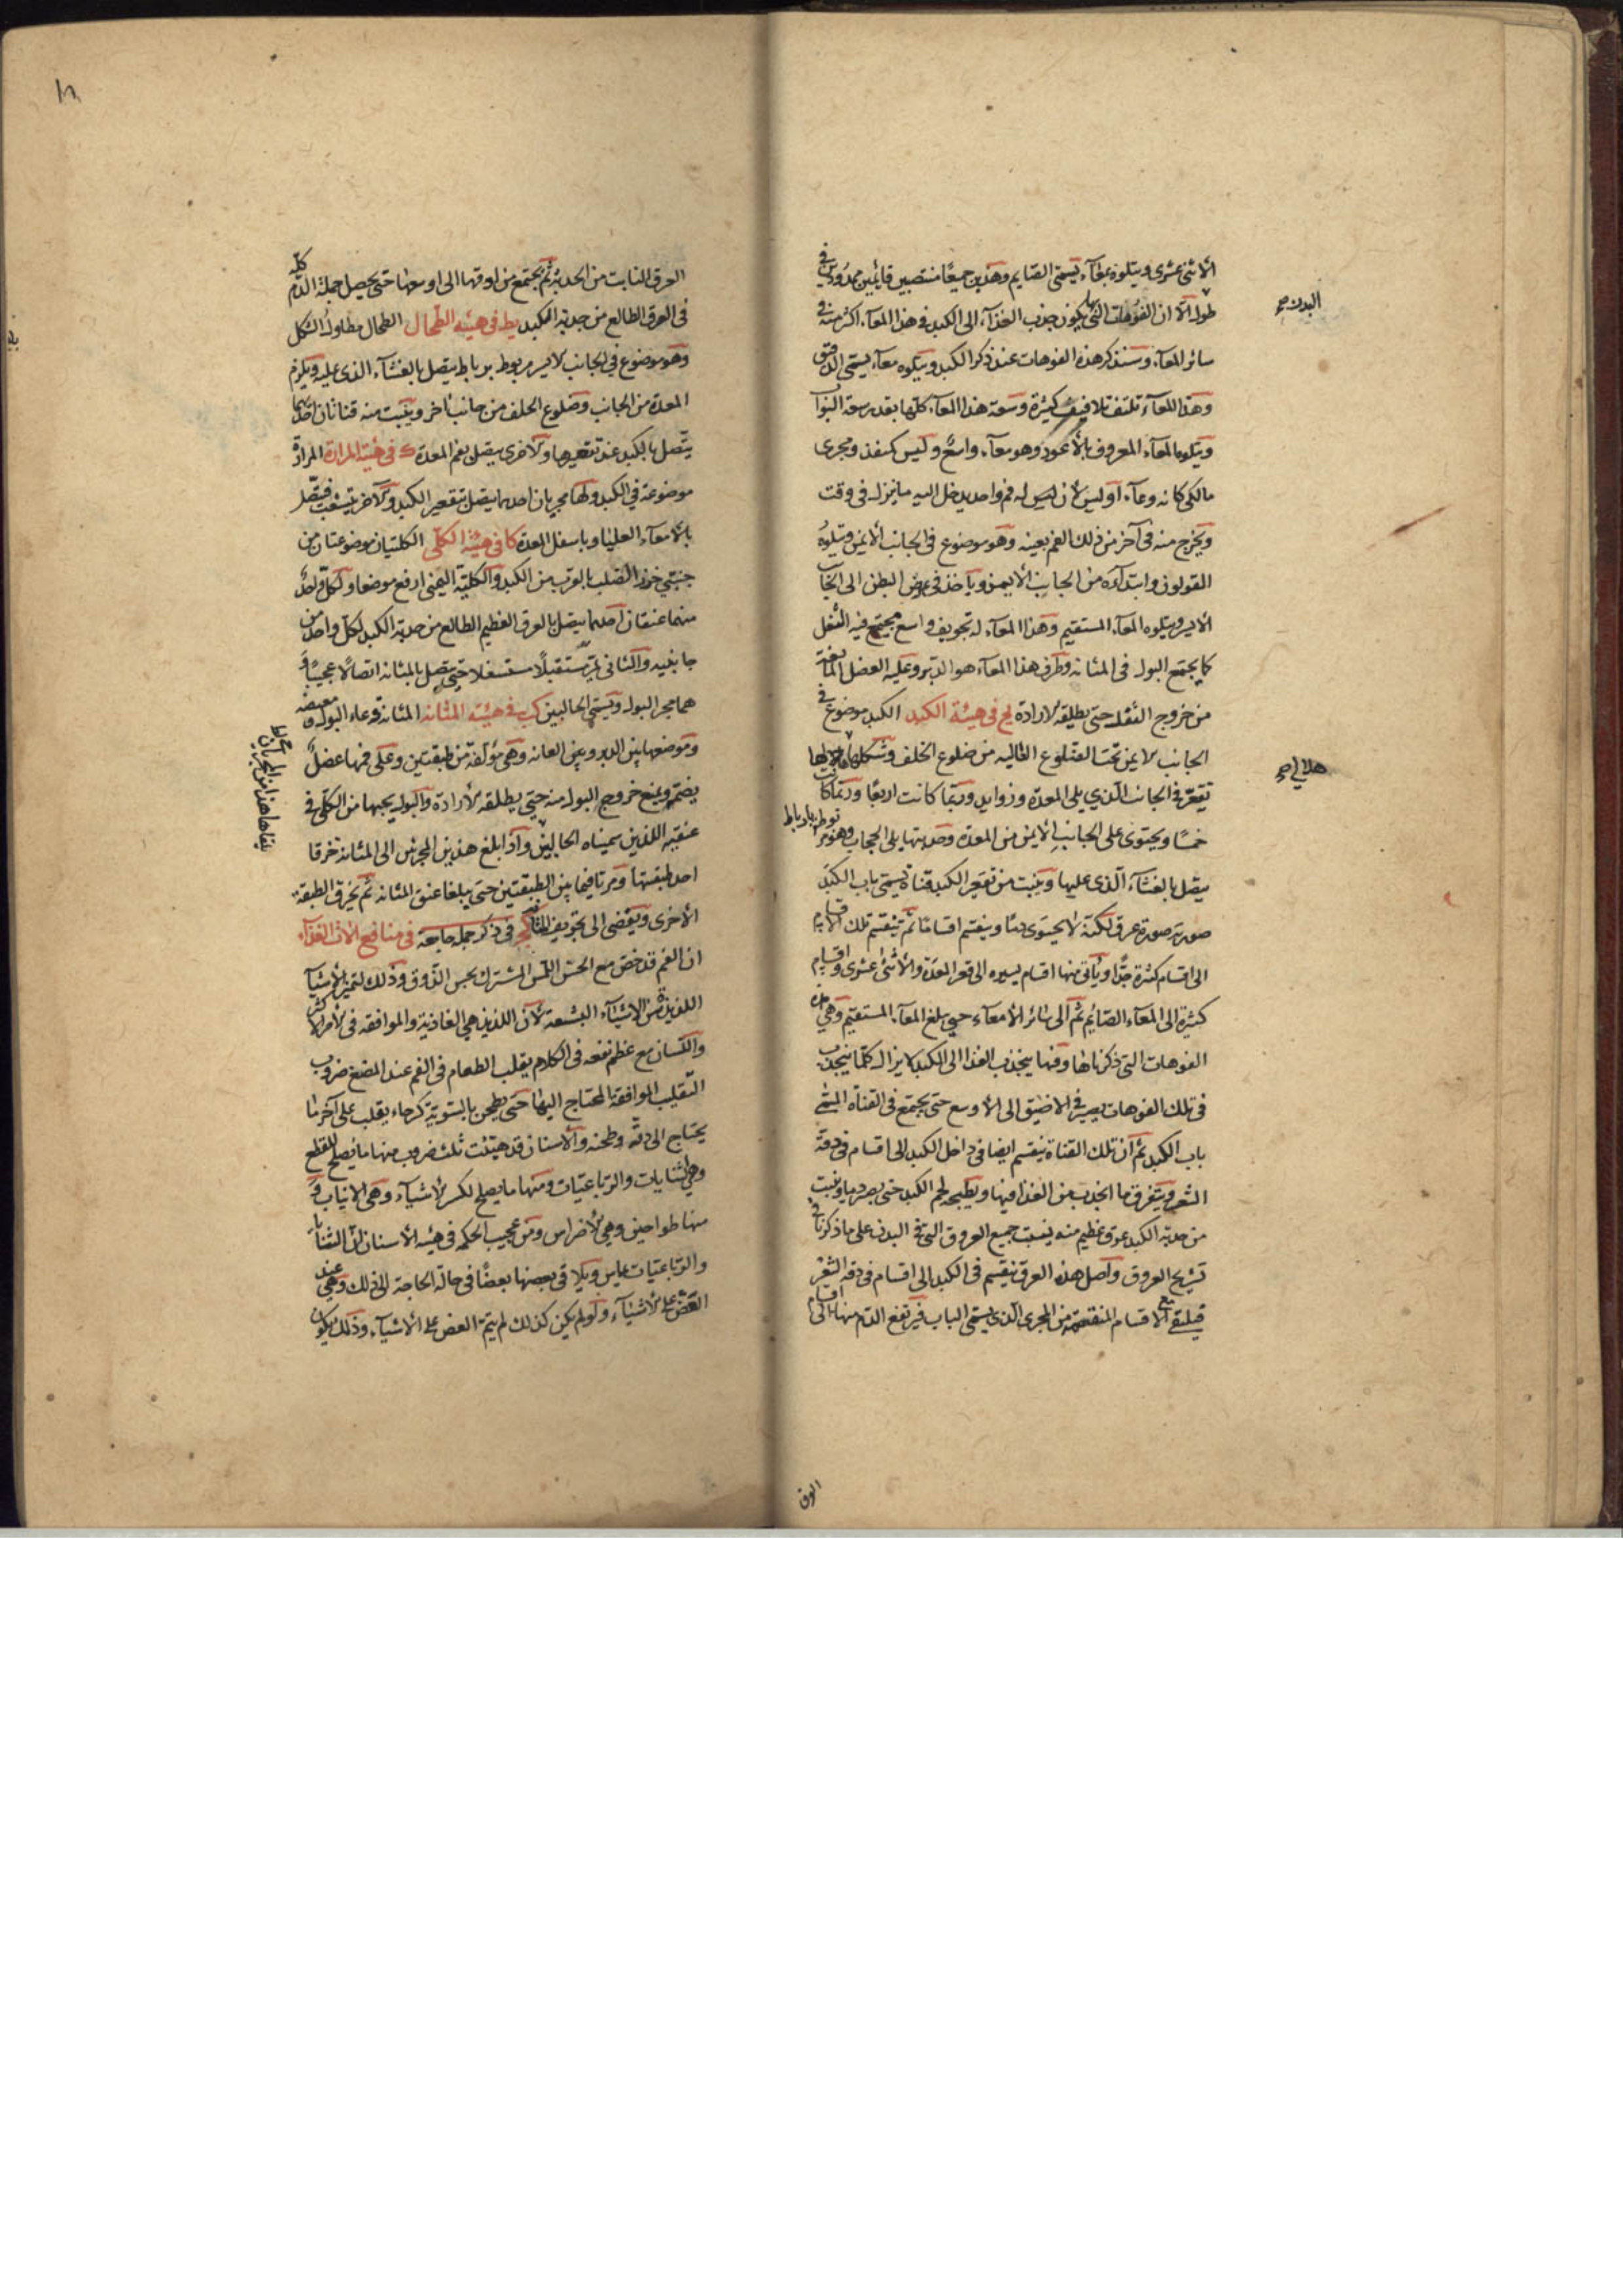 الأثنى عشرى ويتلوه معآء يسمى الصايم وهذين جميعًا منتصبين قايمين ممدودين في
طول الا ان الفوهات التى بها يكون جذب الغذآء الى الكبد في هذا المعآء اكثر منه في
البدن صح
سائر المعآء وسنذكر هذه الفوهات عند ذكر الكبد ويتلوه معآء يسمى الدقيق
وهذا المعآء تلتف تلافيف كثيرة وسعة هذا المعآء كلها بقدر سعة البواب
ويتلوها المعآء المعروف بالأعور وهو معآء واسع وليس له منفذ ومجرى
كانه وعآء او ليس له فم واحد يدخل اليه ما ينزل فى وقت
ويخرج منه فى آخر من ذلك الفم بعينه وهو موضوع فى الجانب الأيمن ويتلوه
القولون وابتدآءه من الجانب الأيمن وياخذ فى عرض البطن الى الجانب
الأيسر ويتلوه المعآء المستقيم وهذا المعآء له تجويف واسع يجتمع فيه الثفل
كما يجتمع البول فى المثانه وطرف هذا المعآء هو الدبر وعليه العضل المانعة
من خروج الثفل حتى يطلقه الارادة يح فى هيئة الكبد الكبد موضوع في
الجانب الايمن تحت الضلوع العاليه من ضلوع الخلف وشكلها
هلالي صح
تقعر فى الجانب الذي يلى المعدة وزوايد وربما كانت اربعًا وربما كانت
خمسًا ويحتوى على الجانب الأيمن من المعدة وحدبتها يلى الحجاب وهو مربوط برباط
يتصل بالغشآء الذى عليها وينبت من تقعير الكبد قناة تسمى باب الكبد
صورته صورة عرق لكنه لا يحتوى دمًا وينقسم اقسامًا ثم تنقسم تلك الاقسام
الى اقسام كثيرة جدًا وياتى منها اقسام يسيره الى قعر المعدة والأثنى عشرى واقسام
كثيرة الى المعآء الصائم ثم الى سائر الأمعآء حتى يبلغ المعآء المستقيم وهي
الفوهات التى ذكرناها وفيها ينجذب الغذا الى الكبد لا يزال كلما ينجذب
فى تلك الفوهات يصير فى الاضيق الى الأوسع حتى يجتمع فى القناة المسمى
باب الكبد ثم ان تلك القناة ينقسم ايضا فى داخل الكبد الى اقسام فى دقة
الشعر ويتفرق ما انجذب من الغذا فيها ويطبخه لحم الكبد حتى يصير دما وينبت
من حدبة الكبد عرق عظيم منه ينبت جميع العروق التى فى البدن على ما ذكرنا في
تشريح العروق واصل هذه العرق ينقسم فى الكبد الى اقسام فى دقه الشعر
فيلتقى مع الاقسام المنقسمة من المجرى الذى يسمى الباب فيرتفع الدم منها الى اقسام
العرق
العرق النابت من الحدبة ثم يجتمع من ادقها الى اوسعها حتى يحصل جملة الدم كله
فى العرق الطالع من حدبة الكبد يط فى هيئه الطحال الطحال مطاول الشكل
وهو موضوع في الجانب الايسر مربوط برباط يتصل بالغشآء الذى عليه ويلزم
المعدة من الجانب وضلوع الخلف من جانب اخر وينبت منه قناتان احديهما
يتصل بالكبد عند تقعيرها والاخرى يتصل بفم المعدة ك فى هيئة المرارة المرارة
موضوعة فى الكبد ولها مجريان احدهما يتصل بتقعير الكبد والاخر يتشعب فيتصل
بالأمعآء العليا وباسفل المعدة كا فى هيئة الكلى الكليتان موضوعتان من
جنبتي خرز الصلب بالقرب من الكبد والكلية اليمنى ارفع موضعا ولكل واحد
منهما عنقان احدهما يتصل بالعرق العظيم الطالع من حدبة الكبد لكل واحد من
جانبيه والثانى يمر مستقبلًا مستسفلا حتى يتصل بالمثانه اتصالًا عجيبًا و
هما مجر البول ويسمى الحالبين كب فى هيئة المثانه المثانة وعاء البول
وموضعها بين الدبر وبين العانه وهى مؤلفة من طبقتين وعلى فمها عضل
يضمه ويمنع خروج البول منه حتى يطلقه الأرادة والبول يجيها من الكلى فى
عنقيه اللذين سميناه الحالبين واذا بلغ هذين المجريين الى المثانه خرقا
احد طبقتيها ومرتا فيما بين الطبقتين حتى يبلغا عنق المثانه ثم يخرق الطبقة
الأخرى ويفضى الى تجويف المثانة كج فى ذكر جمل جامعة فى منافع الات الغذآء
ان الفم قد خص مع الحس اللمس المشترك بحس الذوق وذلك لتميز الأشيآء
اللذيذة من الاشيآء البشعة لأن اللذيذ هي الغاذية والموافقه فى الأمر الأكثر
واللسان مع عظم نفعه فى الكلام يقلب الطعام فى الفم عند المضغ ضروب
التقليب الموافقة المحتاج اليها حتى يطحن بالسوية كرحاء يقلب على آخر ما
يحتاج الى دقه وطحنه والأسنان قد هيئت ثلث ضروب منها ما يصلح للقطع
وهي الثنايات والرباعيات ومنها ما يصلح لكسر الأشيآء وهى الانياب و
منها طواحين وهي الأضراس ومن عجيب الحكمه فى هيئه الأسنان ان الثنايا
والرباعيات تماس ويلاقى بعضها بعضًا فى حالة الحاجة الى ذلك وهي عند
العض على الأشيآء ولو لم يكن كذلك لم يتم العض على الأشيآء وذلك يكون